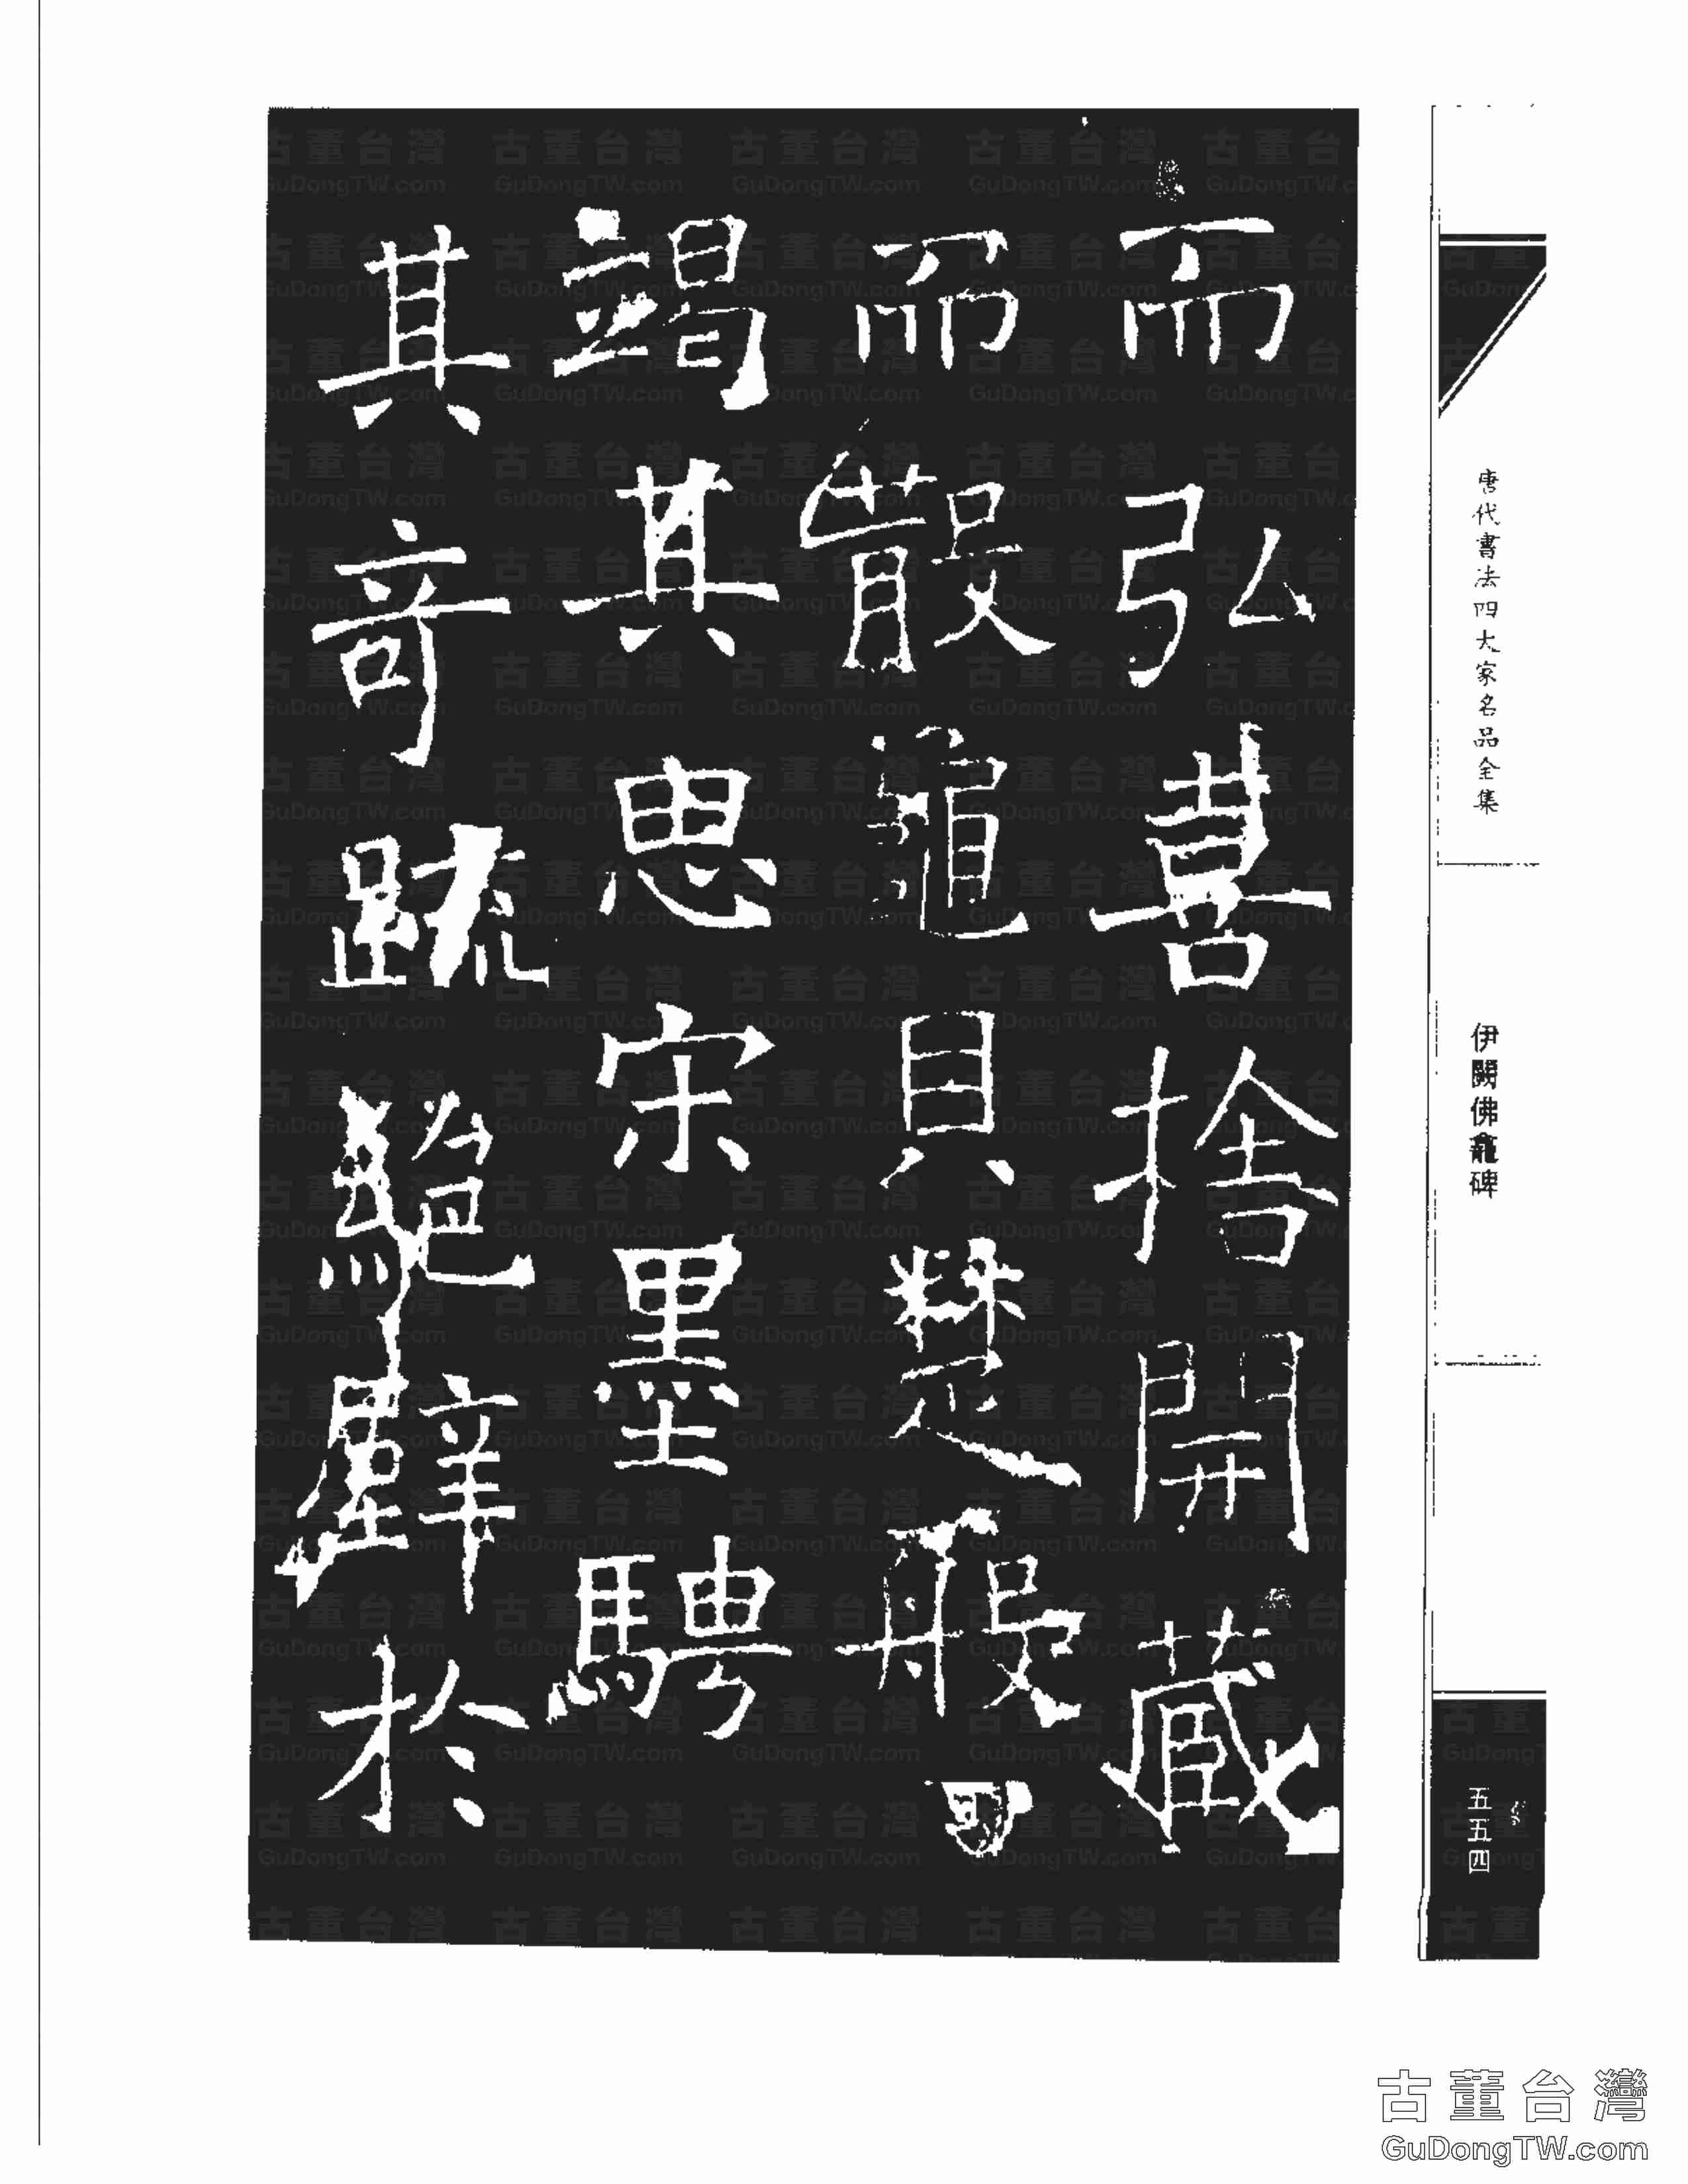 唐代書法四大家名品全集
伊闕佛龕碑
五五四
而弘喜捨開藏
而散龜貝楚般
竭其思宋墨騁
其奇䟽絶壁於
古董台灣
GuDongTW.com